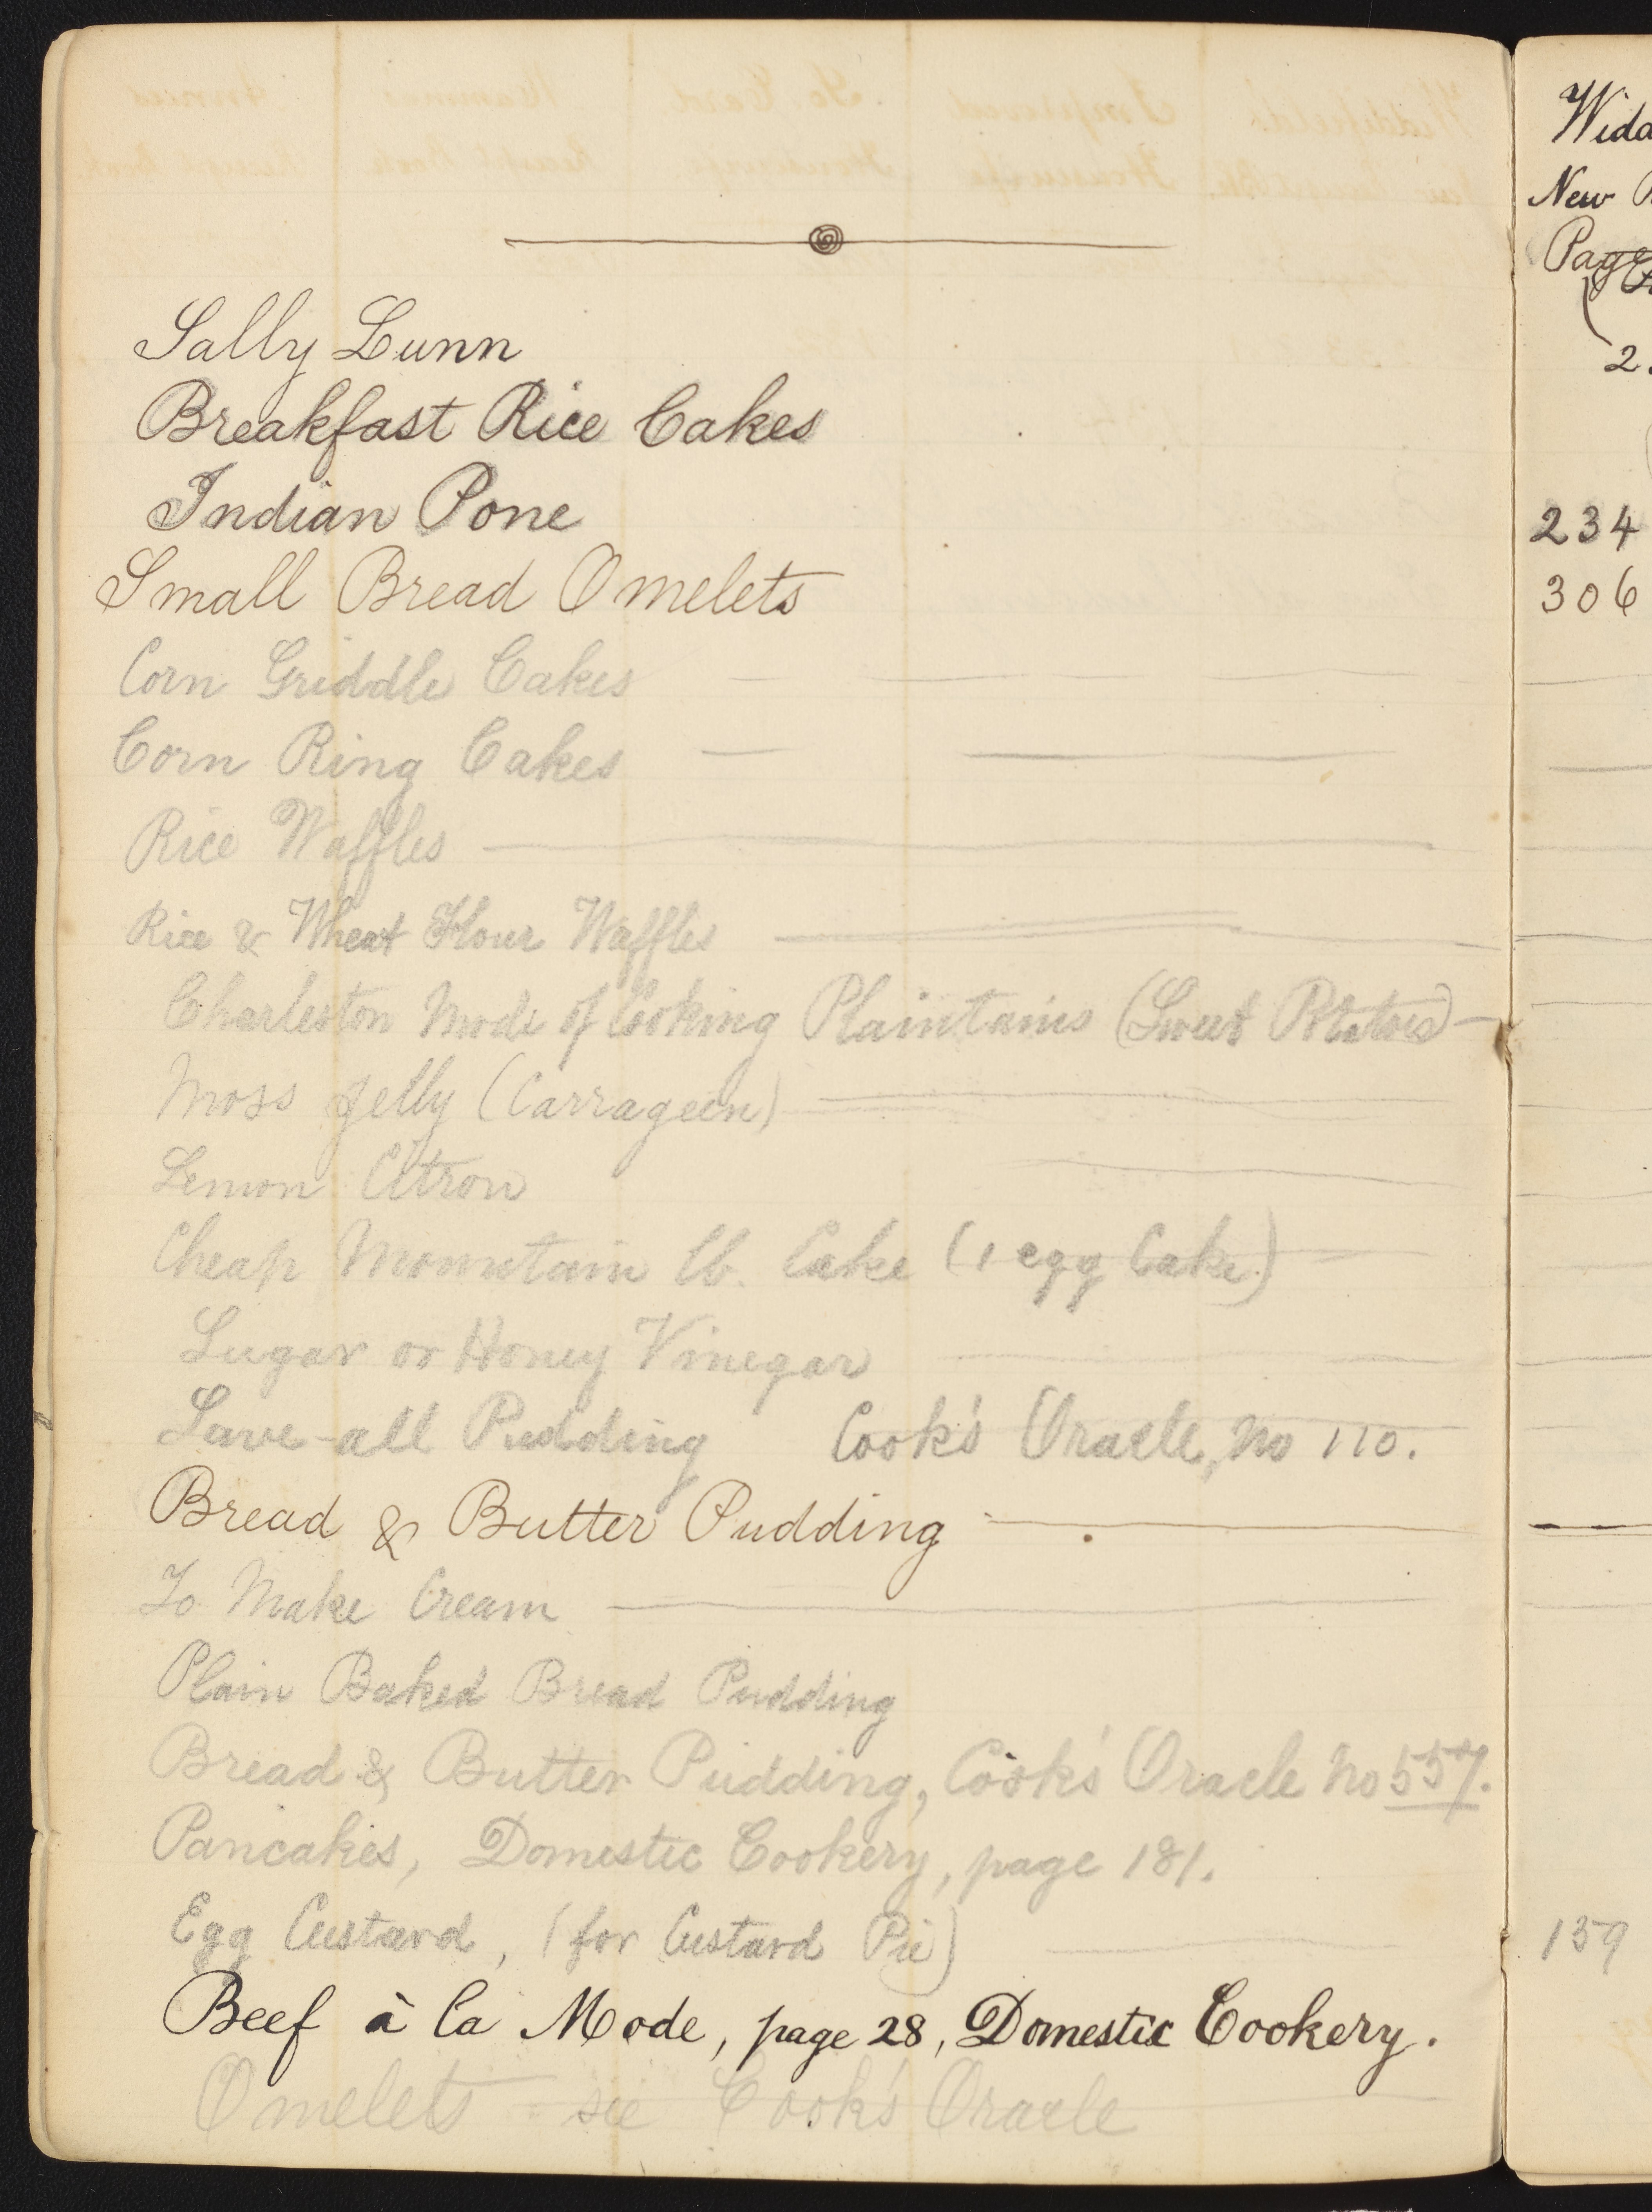 Sally Lunn
Breakfast Rice Cakes
Indian Pone
Small Bread Omelets
Corn Griddle Cakes
Corn Ring Cakes
Rice Waffles
Rice & Wheat Flour Waffles
Charleston Mode of Cooking Plaintains (Sweet Potatoes)
Moss Jelly (Carrageen)
Lemon Citron
Cheap Mountain lb. Cake (1 egg Cake)
Sugar or Honey Vinegar
Save-all Pudding Cook's Oracle, No 110.
Bread & Butter Pudding
To Make Cream
Plain Baked Bread Pudding
Bread & Butter Pudding, Cook's Oracle No 557.
Pancakes, Domestic Cookery, page 181.
Egg Custard, (for Custard Pie)
Beef à la Mode, page 28, Domestic Cookery.
Omelets - see Cook's Oracle
New
Page
2
234
306
159